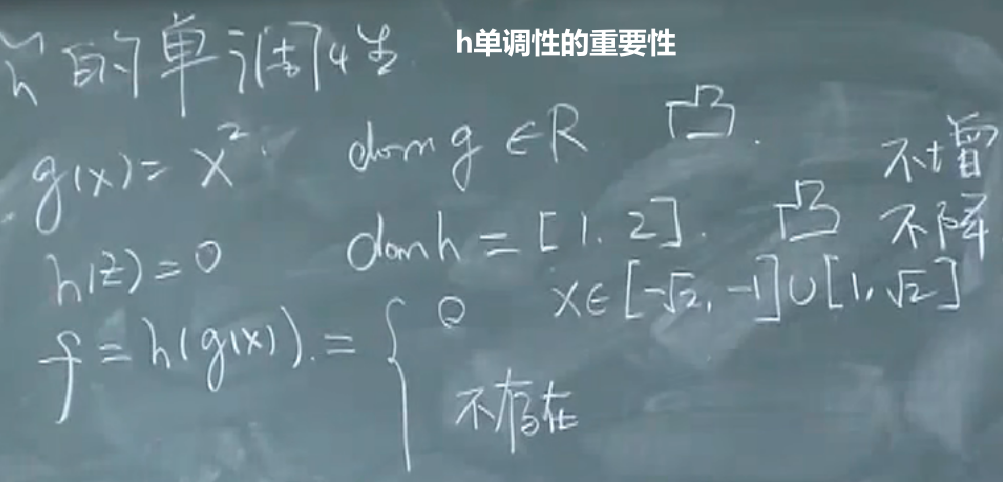 h̃ 的单调性
h单调性的重要性
g(x)=x². dom g ∈R 凸.
不增
h(z)=0 dom h=[1.2]. 凸 不降
f=h(g(x)).= { 0 x∈[-√2,-1]∪[1,√2]
不存在